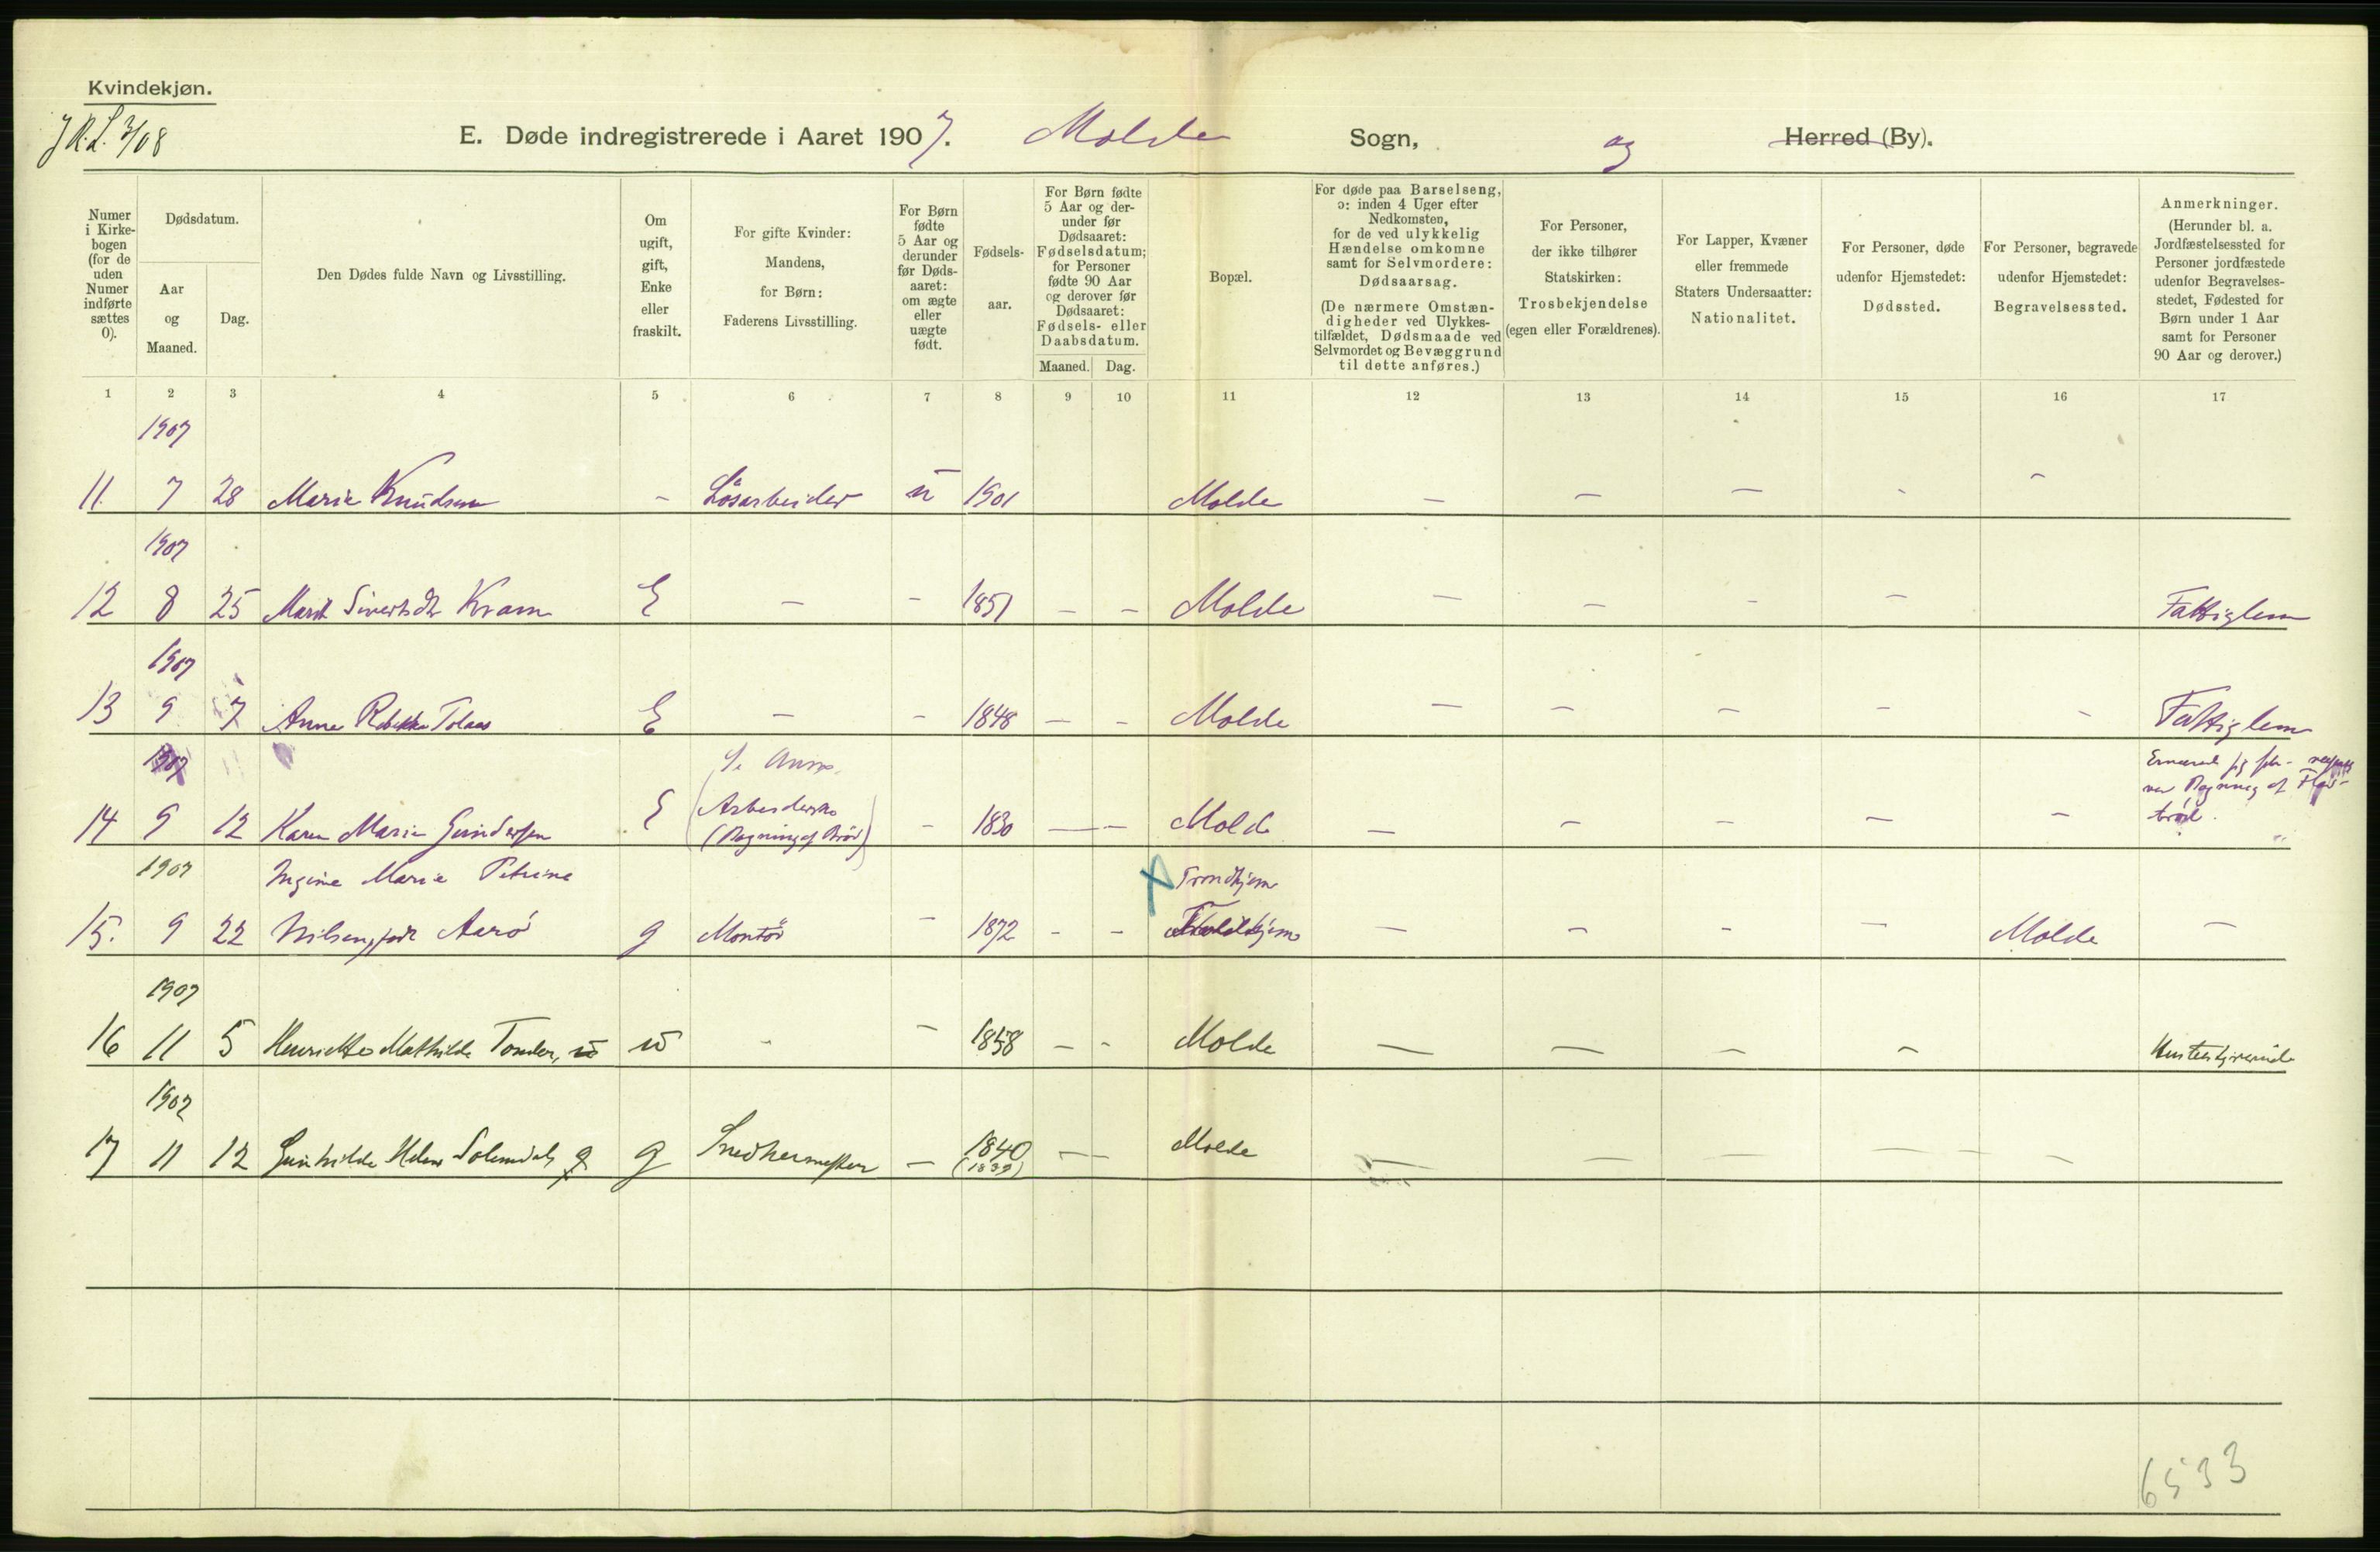 Kvindekjøn.
E. Døde indregistrerede i Aaret 1907. Molde Sogn, og Herred (By).
Numer
i Kirke-
bogen
(for de
uden
Numer
indførte
sættes
0).
Dødsdatum.
Aar
og
Maaned.
Dag.
Den Dødes fulde Navn og Livsstilling.
Om
ugift,
gift,
Enke
eller
fraskilt.
For gifte Kvinder:
Mandens,
for Børn:
Faderens Livsstilling.
For Børn
fødte
5 Aar og
derunder
før Døds-
aaret:
om ægte
eller
uægte
født.
Fødsels-
aar.
For Børn fødte
5 Aar og der-
under før
Dødsaaret:
Fødselsdatum;
for Personer
fødte 90 Aar
og derover før
Dødsaaret:
Fødsels- eller
Daabsdatum.
Maaned. Dag.
Bopæl.
For døde paa Barselseng,
ɔ: inden 4 Uger efter
Nedkomsten,
for de ved ulykkelig
Hændelse omkomne
samt for Selvmordere:
Dødsaarsag.
(De nærmere Omstæn-
digheder ved Ulykkes-
tilfældet, Dødsmaade ved
Selvmordet og Bevæggrund
til dette anføres.)
For Personer,
der ikke tilhører
Statskirken:
Trosbekjendelse
(egen eller Forældrenes).
For Lapper, Kvæner
eller fremmede
Staters Undersaatter:
Nationalitet.
For Personer, døde
udenfor Hjemstedet:
Dødssted.
For Personer, begravede
udenfor Hjemstedet:
Begravelsessted.
Anmerkninger.
(Herunder bl. a.
Jordfæstelsessted for
Personer jordfæstede
udenfor Begravelses-
stedet, Fødested for
Børn under 1 Aar
samt for Personer
90 Aar og derover.)
1 2 3 4 5 6 7 8 9 10 11 12 13 14 15 16 17
1907
11. 7 28 Marie Knudsen - Løsarbeider u 1901 Molde - - - - -
1907
12 8 25 Marit Sivertsdtr Kvam E - - 1851 - - Molde - - - - Fattiglem
1907
13 9 7 Anne Rebekka Tolaas E - - 1848 - - Molde - - - - - Fattiglem
1907 Se Anm.
Arbeiderske
14 9 12 Karen Marie Gundersen E (Bagning af Brød) - 1830 - - Molde - - - - - brød.
1907 Ingine Marie Petrine Trondhjem
15. 9 22 Nilsen, født Aarø g Montør - 1872 - - - - - - Molde -
1907
16 11 5 Henriette Mathilde Tonder, u - - 1858 - - Molde - - - -
1907
17 11 12 Gunhilde Helene Solemdal, g g Snedkermester - 1840 - - Molde - - - - -
(1839)
6533